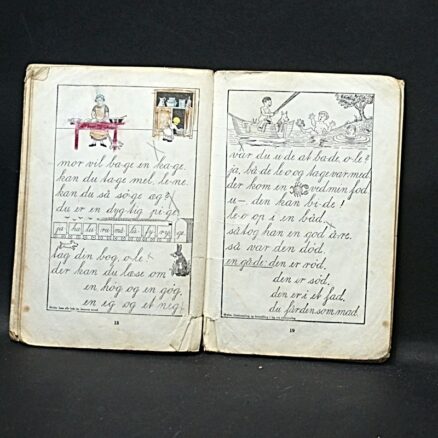 mor vil ba-ge en ka-ge.
kan du ta-ge mel, le-ne.
kan du så sø-ge æg?
du er en dyg-tig pi-ge.
ja hu du ru mi la fy ry ge
tag den bog, o-le!
der kan du læse om
en høg og en gøg,
en eg og et neg!
18
var du u-de at ba-de, o-le?
ja, bå-de le-o og tage var med.
der kom en ved min fod
u- den kan bi-de!
le-o op i en båd,
så tog han en god å-re.
så var den død.
en gå-de: den er rød.
den er sød.
den er i et fad.
du får den som mad.
19